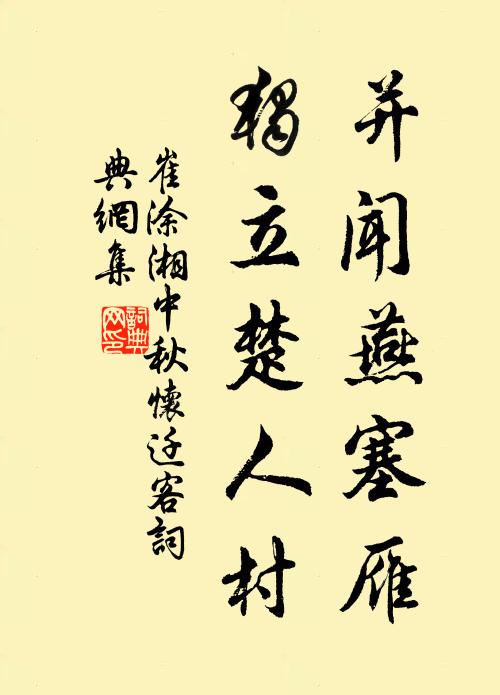 并闻燕塞雁
獨立楚人村
崔涂湘中秋懷迁客詞
典網集
詞典
网印